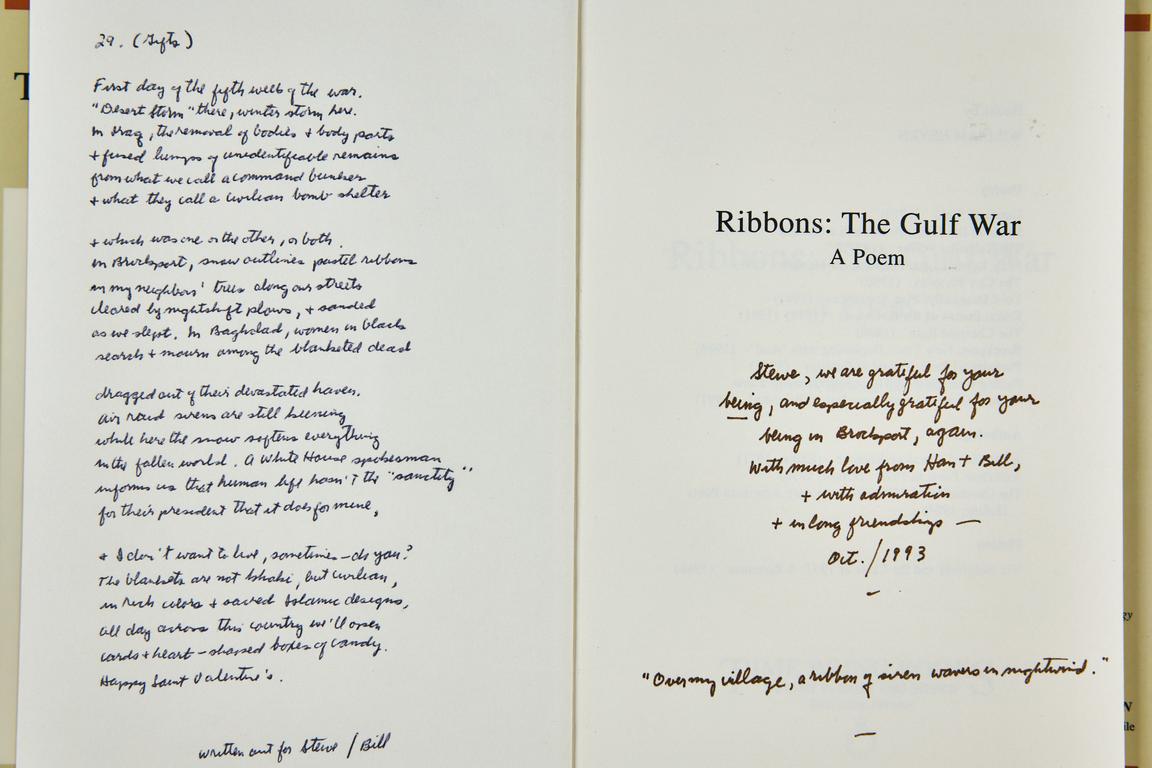 29. (Gifts)
First day of the fifth week of the war.
"Desert Storm" there, winter storm here.
In Iraq, the removal of bodies + body parts
+ fused lumps of unidentifiable remains
from what we call a command bunker
+ what they call a civilian bomb shelter
+ which was one or the other, or both.
In Brockport, snow outlines pastel ribbons
in my neighbors' trees along our streets
cleared by nightshift plows, + sanded
as we slept. In Baghdad, women in black
search + mourn among the blanketed dead
dragged out of their devastated haven.
Air raid sirens are still keening
while here the snow softens everything
in the fallen world. A White House spokesman
informs us that human life hasn't the "sanctity"
for their president that it does for mine,
+ I don't want to live, sometimes—do you?
The blankets are not khaki, but civilian,
in rich colors + sacred Islamic designs,
all day across this country we'll open
cards + heart-shaped boxes of candy.
Happy Saint Valentine's.
written out for Steve / Bill
Ribbons: The Gulf War
A Poem
Steve, we are grateful for your
being, and especially grateful for your
being in Brockport, again.
With much love from Han + Bill,
+ with admiration
+ in long friendship —
Oct. / 1993
"Over my village, a ribbon of siren wavers in nightwind."